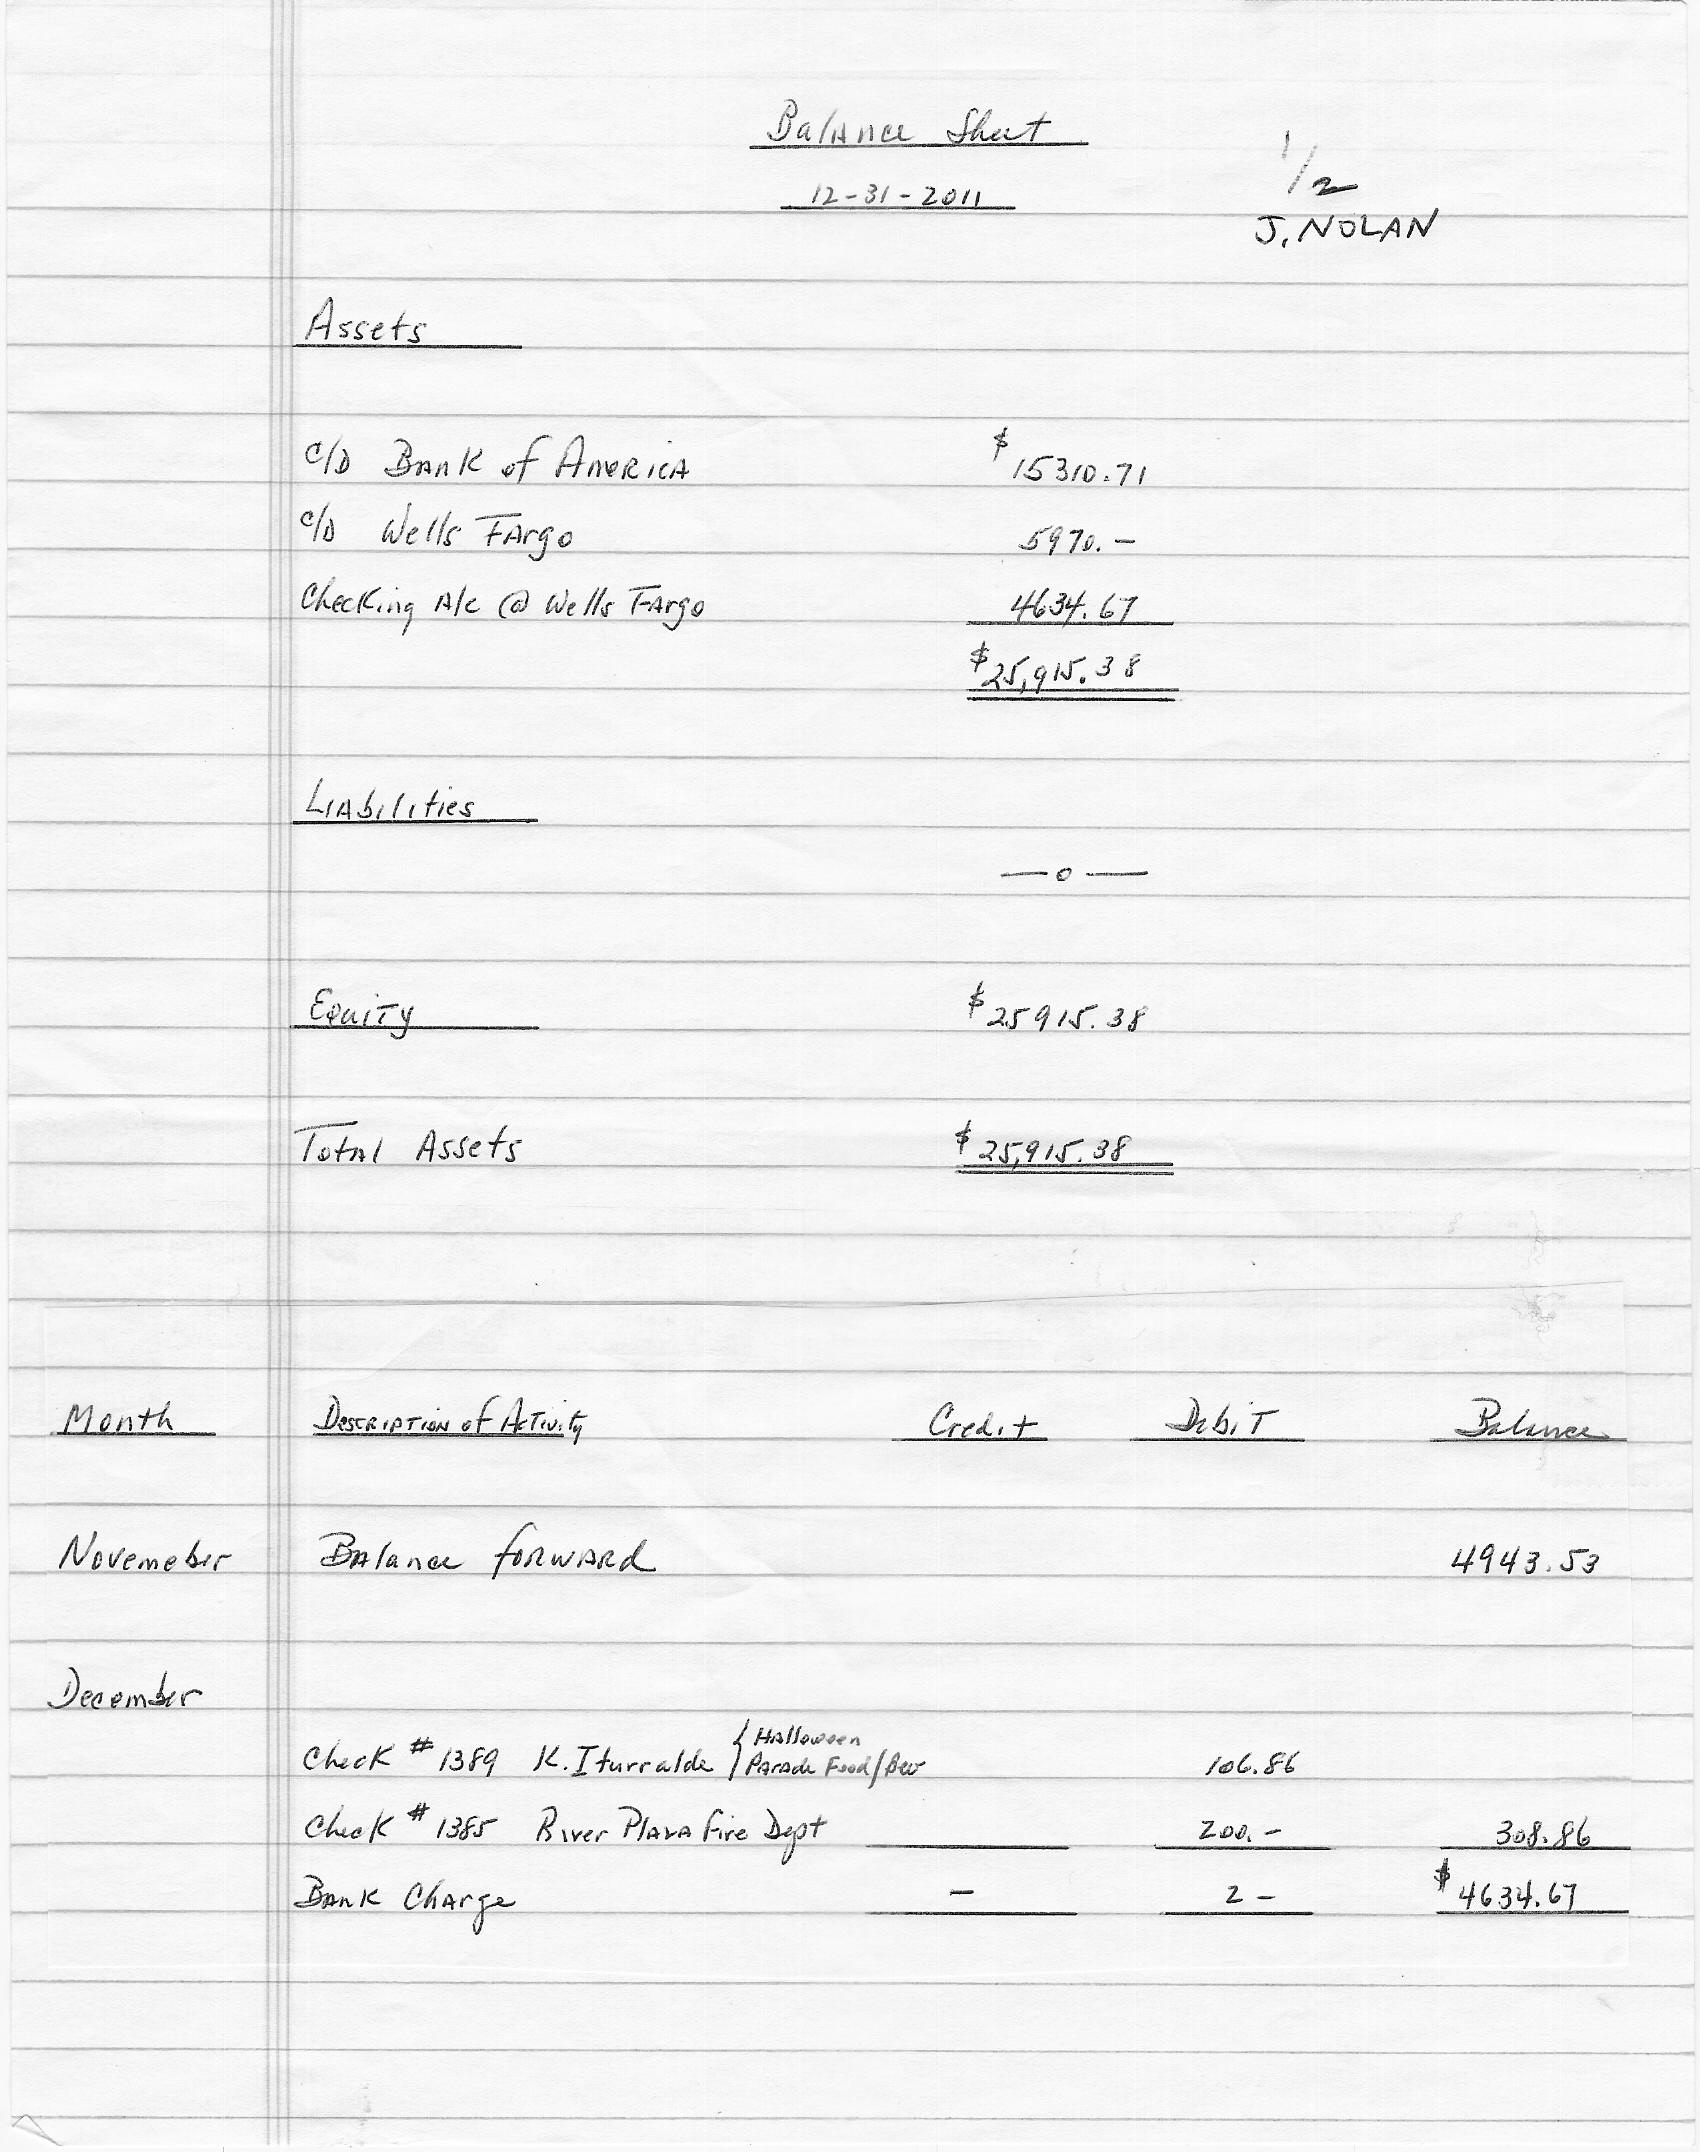 Balance Sheet
12-31-2011
1/2
J. NOLAN
Assets
C/D Bank of America $ 15310.71
C/D Wells Fargo 5970.-
Checking A/c @ Wells Fargo 4634.67
$25,915.38
Liabilities
— 0 —
Equity $25915.38
Total Assets $25,915.38
Month Description of Activity Credit Debit Balance
Novemeber Balance forward 4943.53
December
Check # 1389 K. Iturralde { Halloween Parade Food/Bev 106.86
Check # 1385 River Plaza Fire Dept 200.- 308.86
Bank Charge - 2 - $4634.67